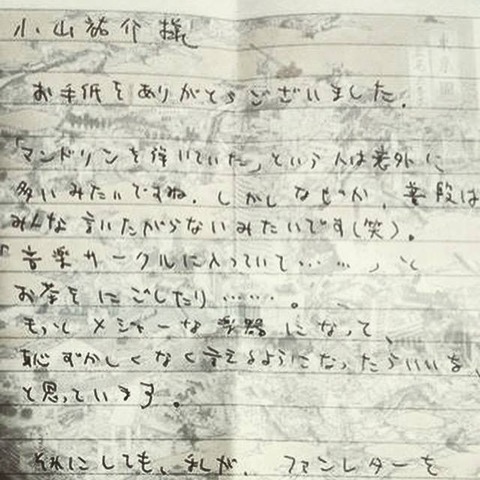 小山祐介様
お手紙をありがとうございました.
「マンドリンを弾いていた」という人は意外に
多いみたいですね. しかしなぜか、普段は
みんな言いたがらないみたいです(笑).
「音楽サークルに入っていて……」と
お茶をにごしたり……。
もっとメジャーな楽器になって、
恥ずかしくなく言えるようになったらいいな、
と思っています。
それにしても、私が、ファンレターを